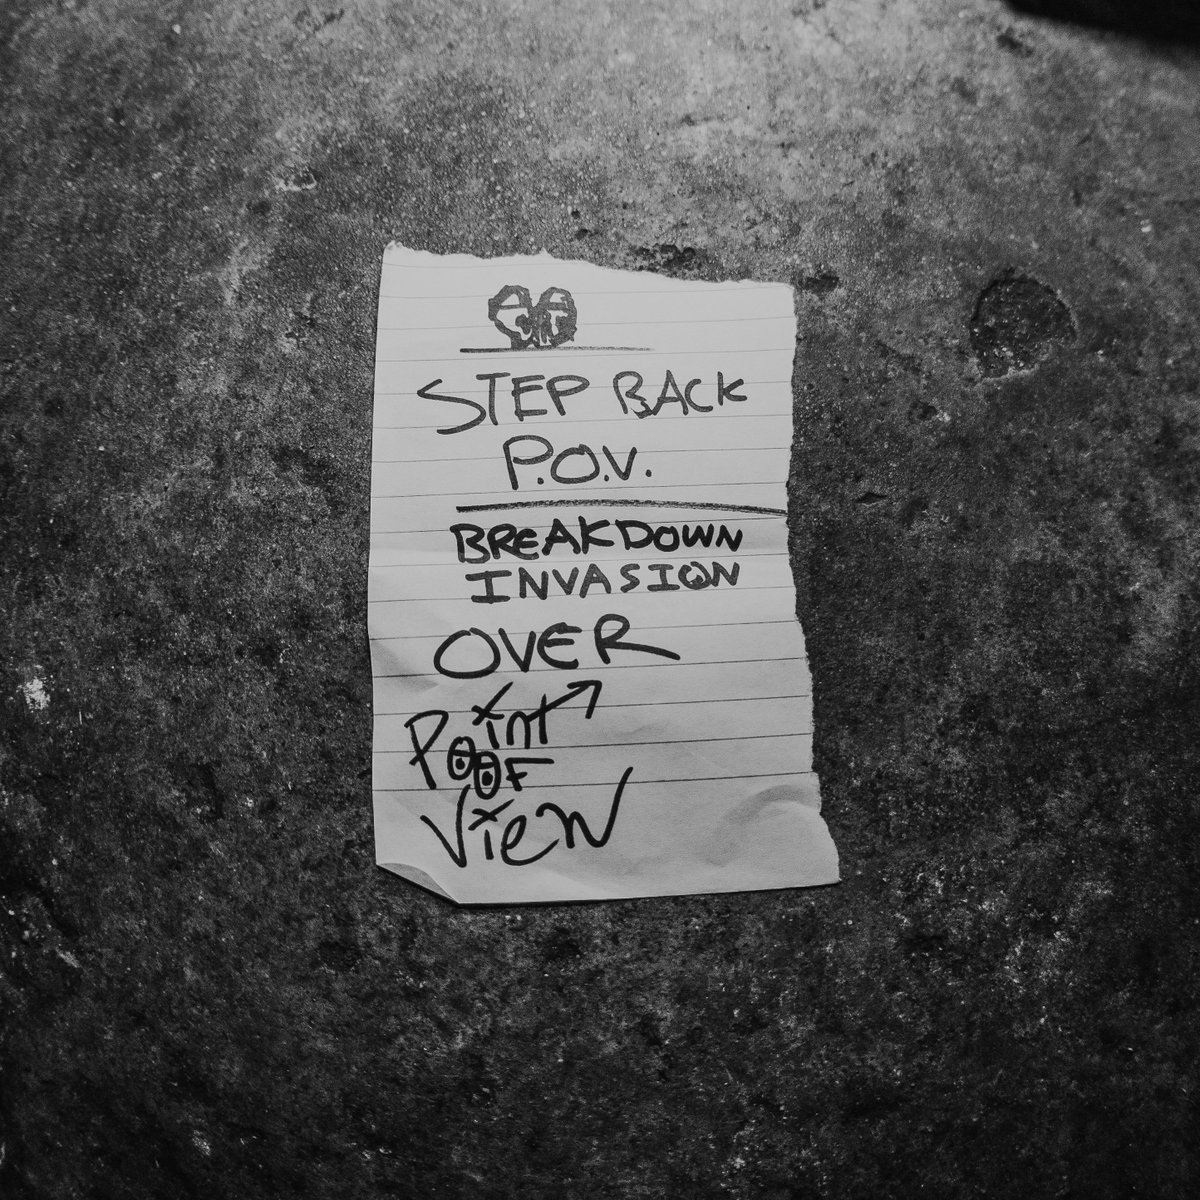 STEP BACK
P.O.V.
BREAKDOWN
INVASION
OVER
Point
OF
View